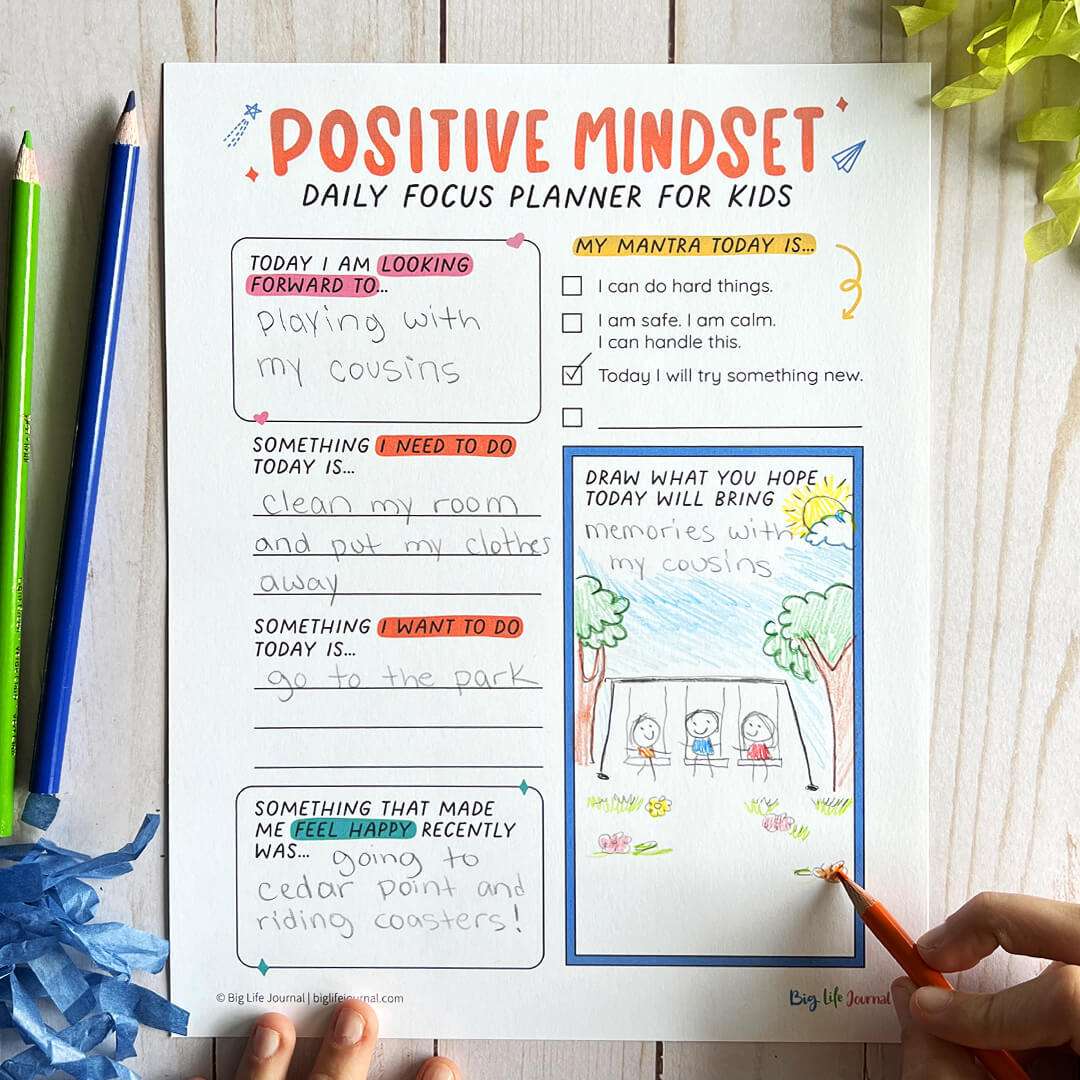 POSITIVE MINDSET
DAILY FOCUS PLANNER FOR KIDS
TODAY I AM LOOKING
FORWARD TO...
playing with
my cousins
SOMETHING I NEED TO DO
TODAY IS...
clean my room
and put my clothes
away
SOMETHING I WANT TO DO
TODAY IS...
go to the park
SOMETHING THAT MADE
ME FEEL HAPPY RECENTLY
WAS... going to
cedar point and
riding coasters!
MY MANTRA TODAY IS...
I can do hard things.
I am safe. I am calm.
I can handle this.
Today I will try something new.
DRAW WHAT YOU HOPE
TODAY WILL BRING
memories with
my cousins
© Big Life Journal | biglifejournal.com
Big Life Journal